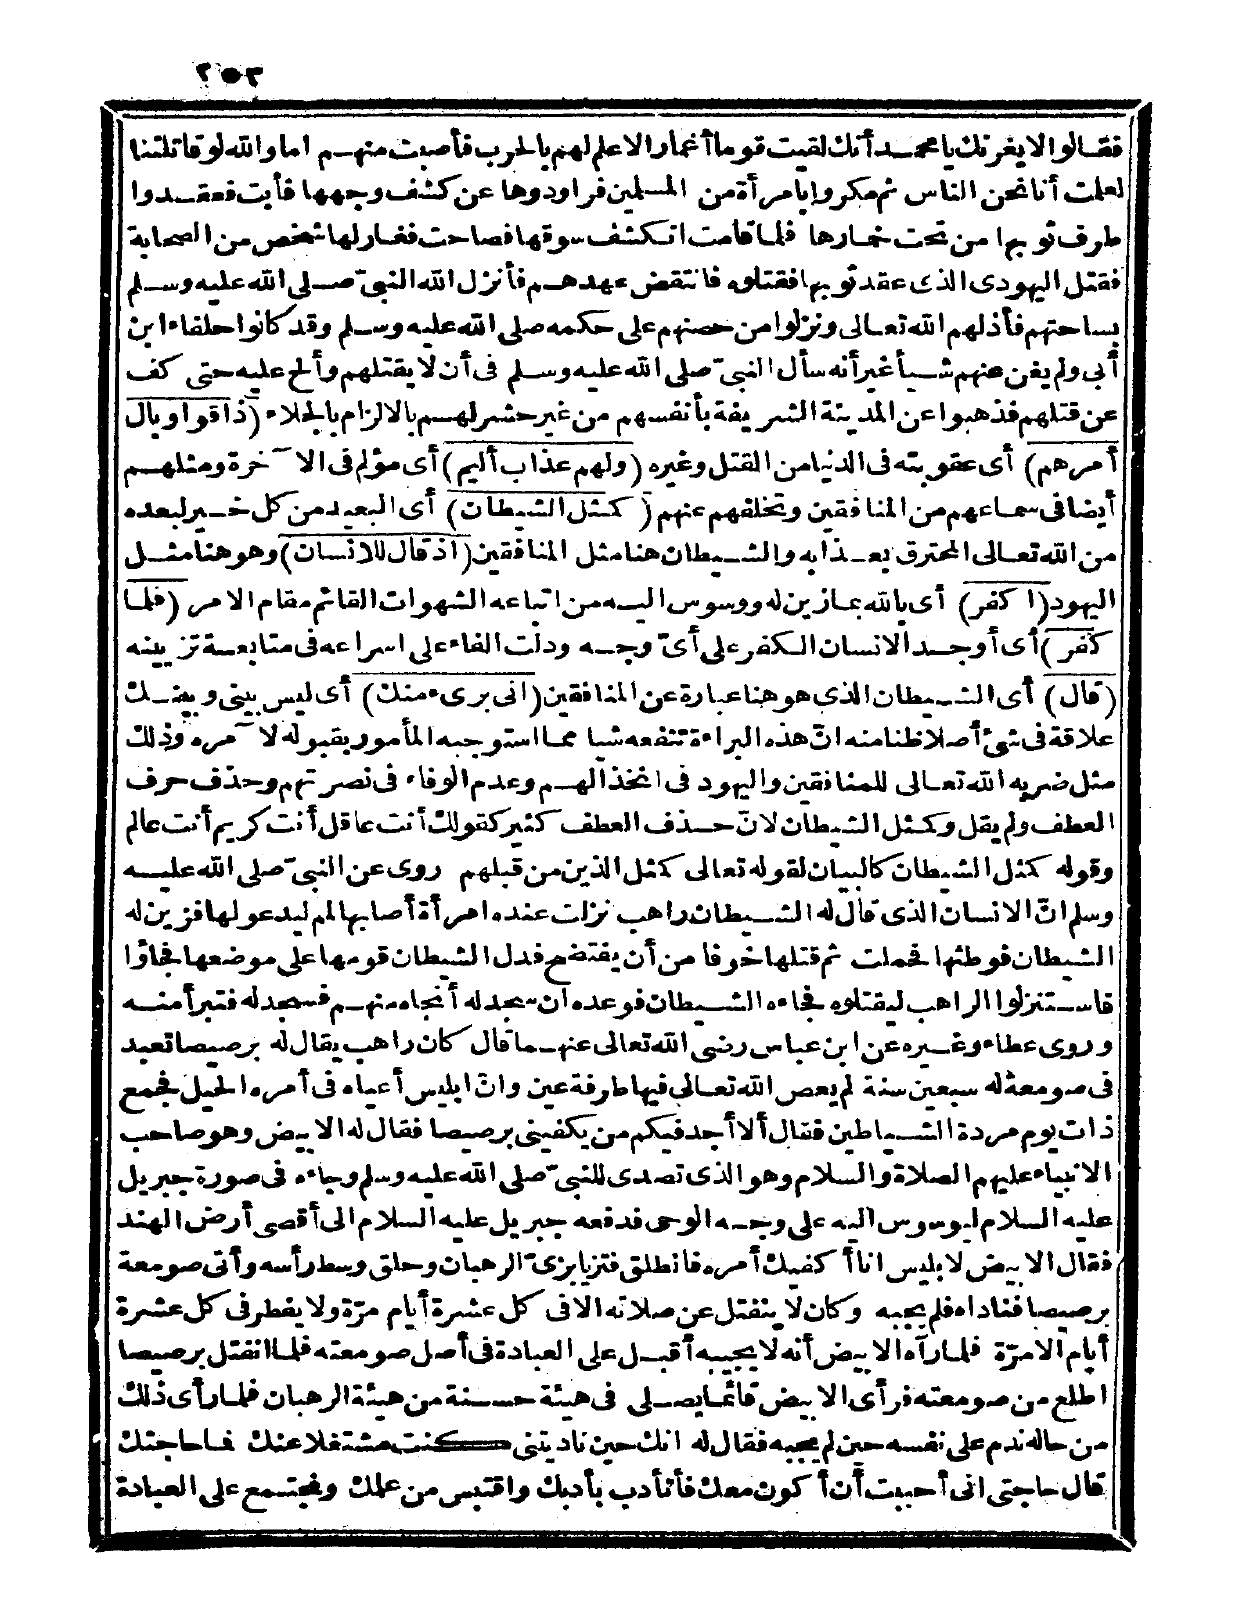 ٢٥٣
فقالوا لا يغرنك يا محمد أنك لقيت قوما أغمارا لا علم لهم بالحرب فأصبت منهم اما والله لو قاتلتنا
لعلمت أنا نحن الناس ثم مكروا بامرأة من المسلمين فراودوها عن كشف وجهها فأبت فعقدوا
طرف ثوبها من تحت خمارها فلما قامت انكشف سوقها فصاحت فغار لها شخص من الصحابة
فقتل اليهودى الذى عقد ثوبها فقتلوه فانتقض عهدهم فأنزل الله النبىّ صلى الله عليه وسلم
بساحتهم فأذلهم الله تعالى ونزلوا من حصنهم على حكمه صلى الله عليه وسلم وقد كانوا حلفاء ابن
أبى ولم يغن عنهم شيأ غير أنه سأل النبىّ صلى الله عليه وسلم فى أن لا يقتلهم وألح عليه حتى كف
عن قتلهم فذهبوا عن المدينة الشريفة بأنفسهم من غير حشر لهم بالالزام بالجلاء (ذاقوا وبال
أمرهم) أى عقوبته فى الدنيا من القتل وغيره (ولهم عذاب أليم) أى مؤلم فى الآخرة ومثلهم
أيضا فى سماعهم من المنافقين وتخلفهم عنهم (كمثل الشيطان) أى البعيد من كل خير لبعده
من الله تعالى المحترق بعذابه والشيطان هنا مثل المنافقين (اذ قال للانسان) وهو هنا مثل
اليهود (اكفر) أى بالله بما زين له ووسوس اليه من اتباعه الشهوات القائم مقام الامر (فلما
كفر) أى أوجد الانسان الكفر على أىّ وجه ودلت الفاء على اسراعه فى متابعة تزيينه
(قال) أى الشيطان الذى هو هنا عبارة عن المنافقين (انى برىء منك) أى ليس بينى وبينك
علاقة فى شئ أصلا ظنا منه انّ هذه البراءة تنفعه شيأ مما استوجبه المأمور بقبوله لآمره وذلك
مثل ضربه الله تعالى للمنافقين واليهود فى انخذالهم وعدم الوفاء فى نصرتهم وحذف حرف
العطف ولم يقل وكمثل الشيطان لانّ حذف العطف كثير كقولك أنت عاقل أنت كريم أنت عالم
وقوله كمثل الشيطان كالبيان لقوله تعالى كمثل الذين من قبلهم روى عن النبىّ صلى الله عليه
وسلم انّ الانسان الذى قال له الشيطان راهب نزلت عنده امرأة أصابها لمم ليدعو لها فزين له
الشيطان فوطئها فحملت ثم قتلها خوفا من أن يفتضح فدل الشيطان قومها على موضعها فجاؤا
فاستنزلوا الراهب ليقتلوه فجاءه الشيطان فوعده ان سجد له أنجاه منهم فسجد له فتبرأ منه
وروى عطاء وغيره عن ابن عباس رضى الله تعالى عنهما قال كان راهب يقال له برصيصا تعبد
فى صومعة له سبعين سنة لم يعص الله تعالى فيها طرفة عين وانّ ابليس أعياه فى أمره الحيل فجمع
ذات يوم مردة الشياطين فقال ألا أجد فيكم من يكفينى برصيصا فقال له الابيض وهو صاحب
الانبياء عليهم الصلاة والسلام وهو الذى تصدى للنبىّ صلى الله عليه وسلم وجاءه فى صورة جبريل
عليه السلام ليوسوس اليه على وجه الوحى فدفعه جبريل عليه السلام الى أقصى أرض الهند
فقال الابيض لابليس انا أكفيك أمره فانطلق فتزيا بزىّ الرهبان وحلق وسط رأسه وأتى صومعة
برصيصا فناداه فلم يجبه وكان لا ينفتل عن صلاته الا فى كل عشرة أيام مرّة ولا يفطر فى كل عشرة
أيام الا مرّة فلما رآه الابيض أنه لا يجيبه أقبل على العبادة فى أصل صومعته فلما انفتل برصيصا
اطلع من صومعته فرأى الابيض قائما يصلى فى هيئة حسنة من هيئة الرهبان فلما رأى ذلك
من حاله ندم على نفسه حين لم يجبه فقال له انك حين ناديتنى كنت مشتغلا عنك فما حاجتك
قال حاجتى انى أحببت أن أكون معك فأتأدب بأدبك واقتبس من علمك ونجتمع على العبادة